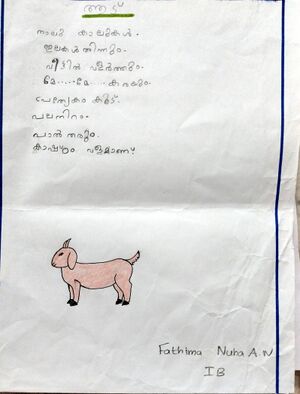 ആട്
നാലു കാലുകൾ.
ഇലകൾ തിന്നും.
വീട്ടിൽ വളർത്തും.
മേ.....മേ.... കരയും
പ്രത്യേകം കൂട്.
പലനിറം.
പാൽ തരും.
കാഷ്ഠം വളമാണ്
Fathima Nuha A.N
I B